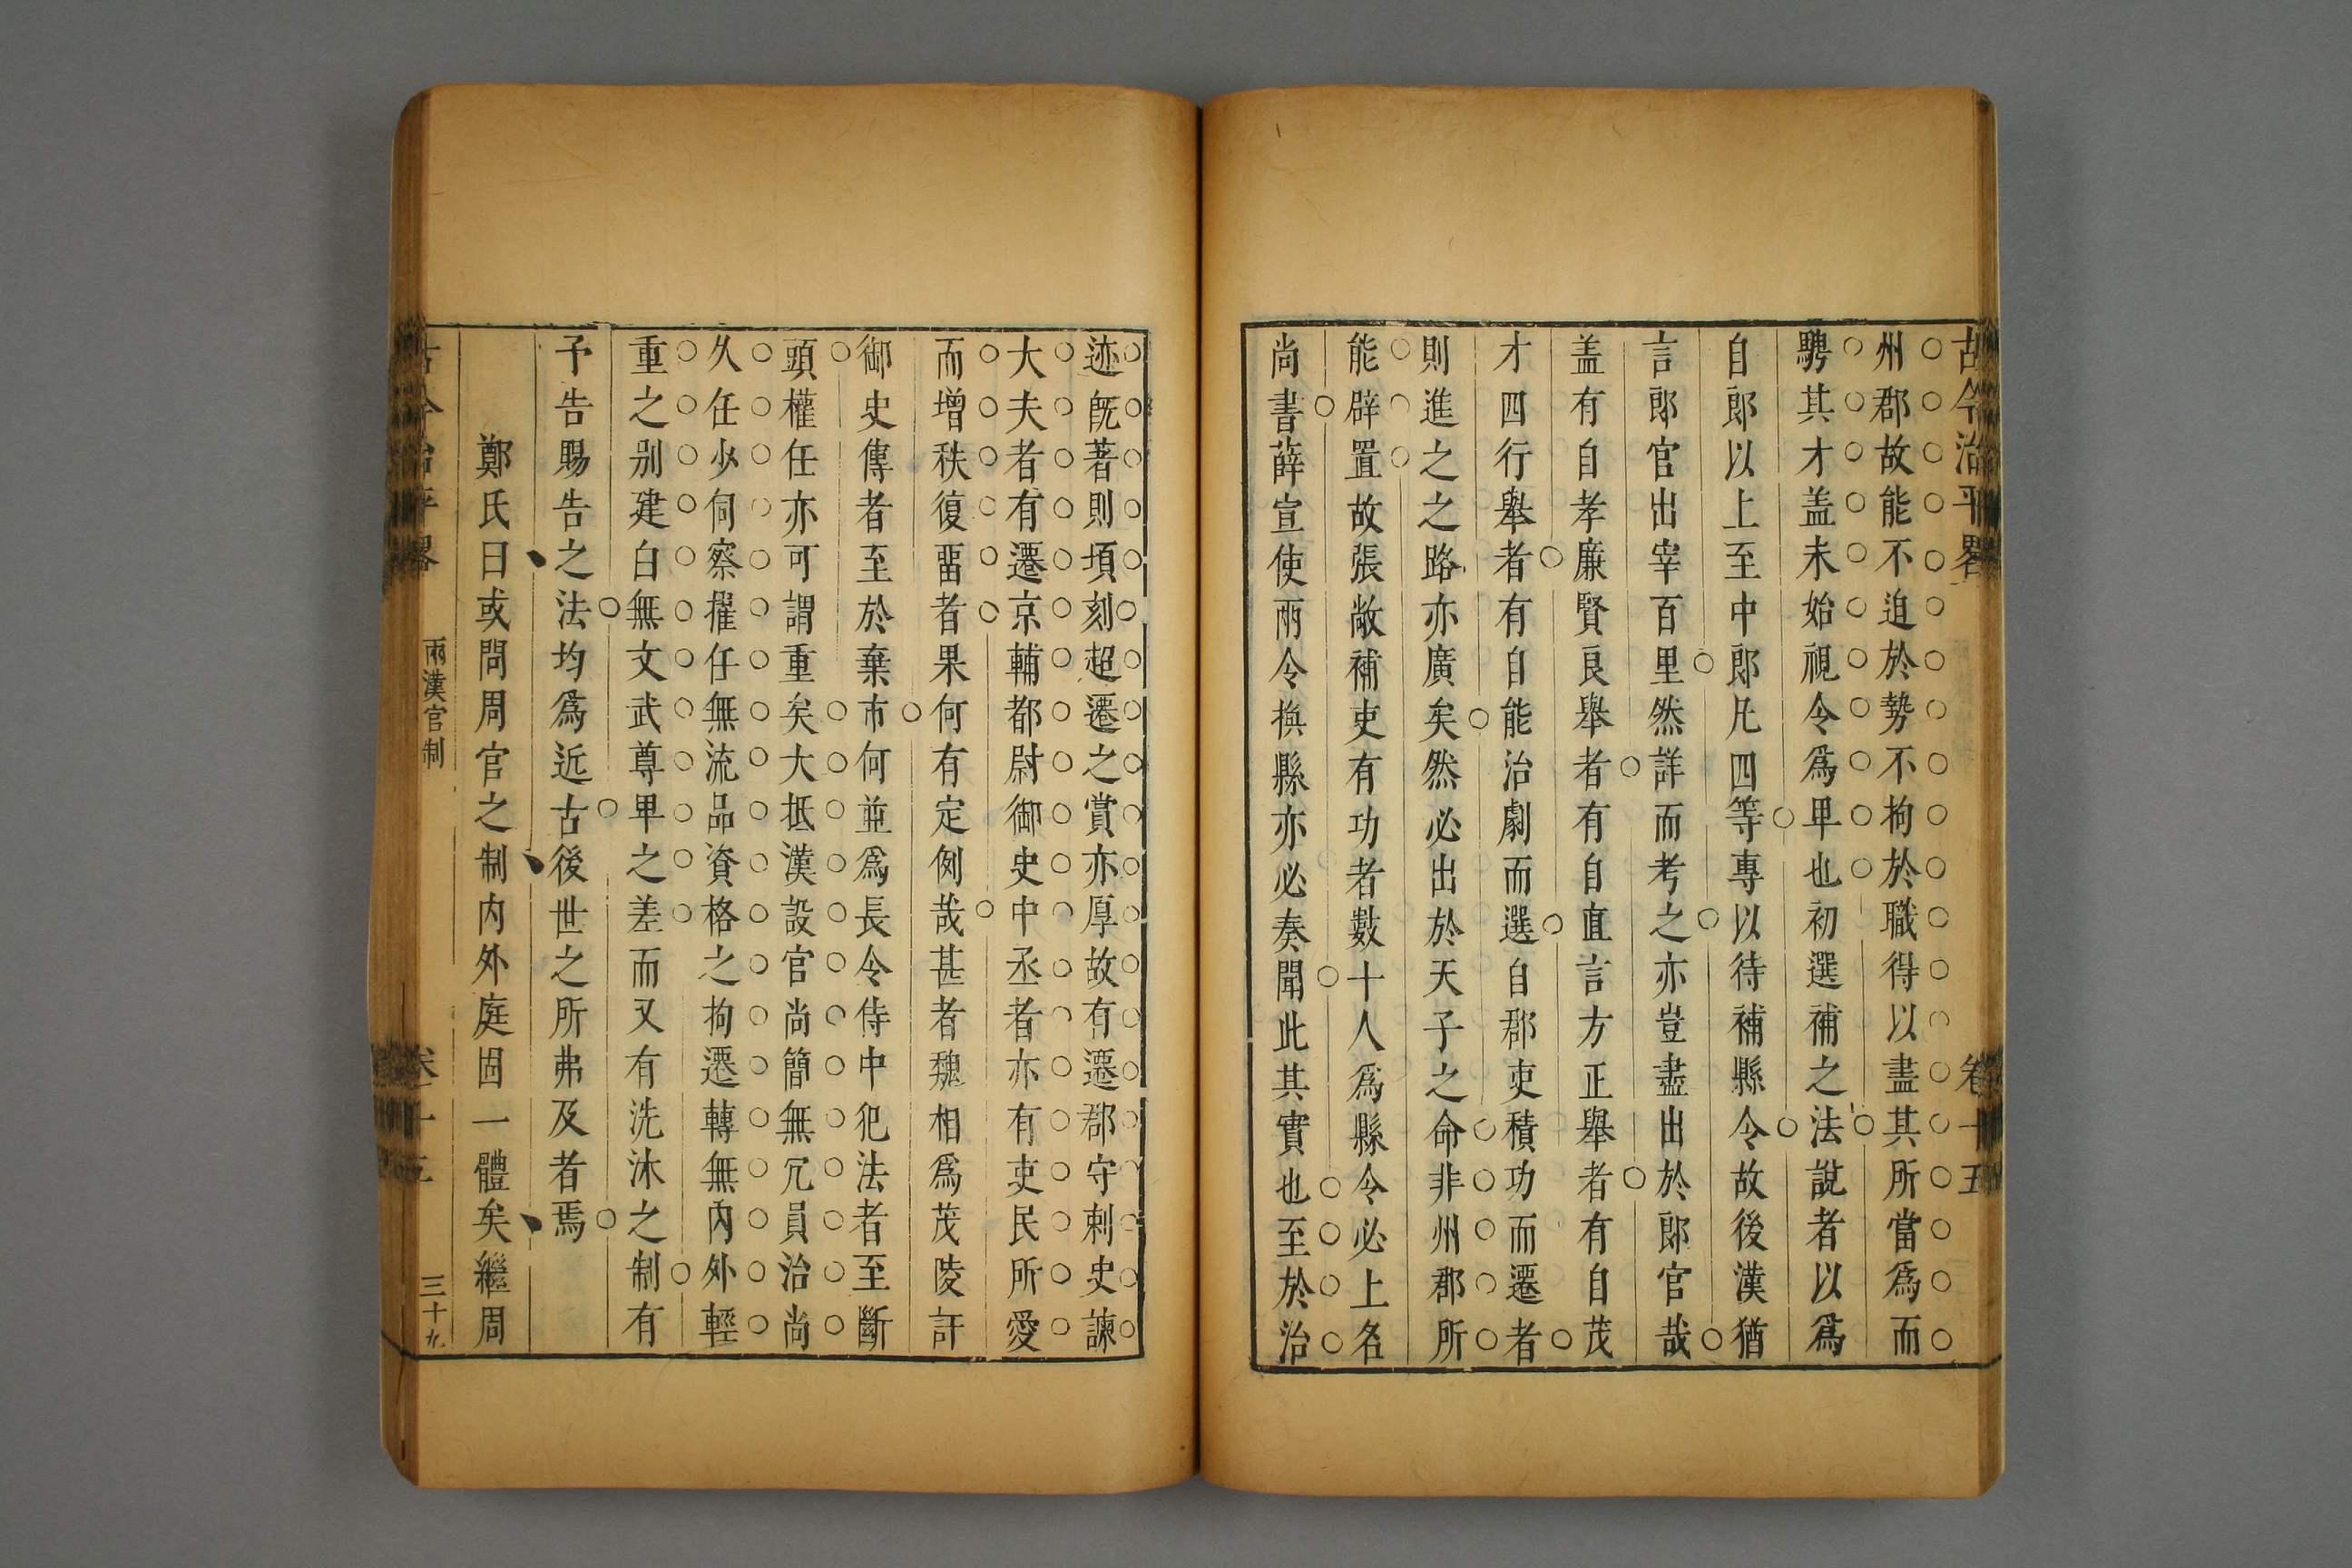 古今治平畧 卷十五
州郡故能不迫於勢不拘於職得以盡其所當爲而
騁其才盖未始視令爲卑也初選補之法說者以爲
自郎以上至中郎凡四等專以待補縣令故後漢猶
言郎官出宰百里然詳而考之亦豈盡出於郎官哉
盖有自孝廉賢良舉者有自直言方正舉者有自茂
才四行舉者有自能治劇而選自郡吏積功而遷者
則進之之路亦廣矣然必出於天子之命非州郡所
能辟置故張敞補吏有功者數十人爲縣令必上名
尚書薛宣使兩令換縣亦必奏聞此其實也至於治
迹旣著則頃刻超遷之賞亦厚故有遷郡守刺史諫
大夫者有遷京輔都尉御史中丞者亦有吏民所愛
而增秩復畱者果何有定例哉甚者魏相爲茂陵訐
御史傳者至於棄市何並爲長令侍中犯法者至斷
頭權任亦可謂重矣大抵漢設官尚簡無冗員治尚
久任少伺察擢任無流品資格之拘遷轉無內外輕
重之别建白無文武尊卑之差而又有洗沐之制有
予告賜告之法均爲近古後世之所弗及者焉
鄭氏曰或問周官之制内外庭固一體矣繼周
古今治平畧 兩漢官制 卷十五 三十九